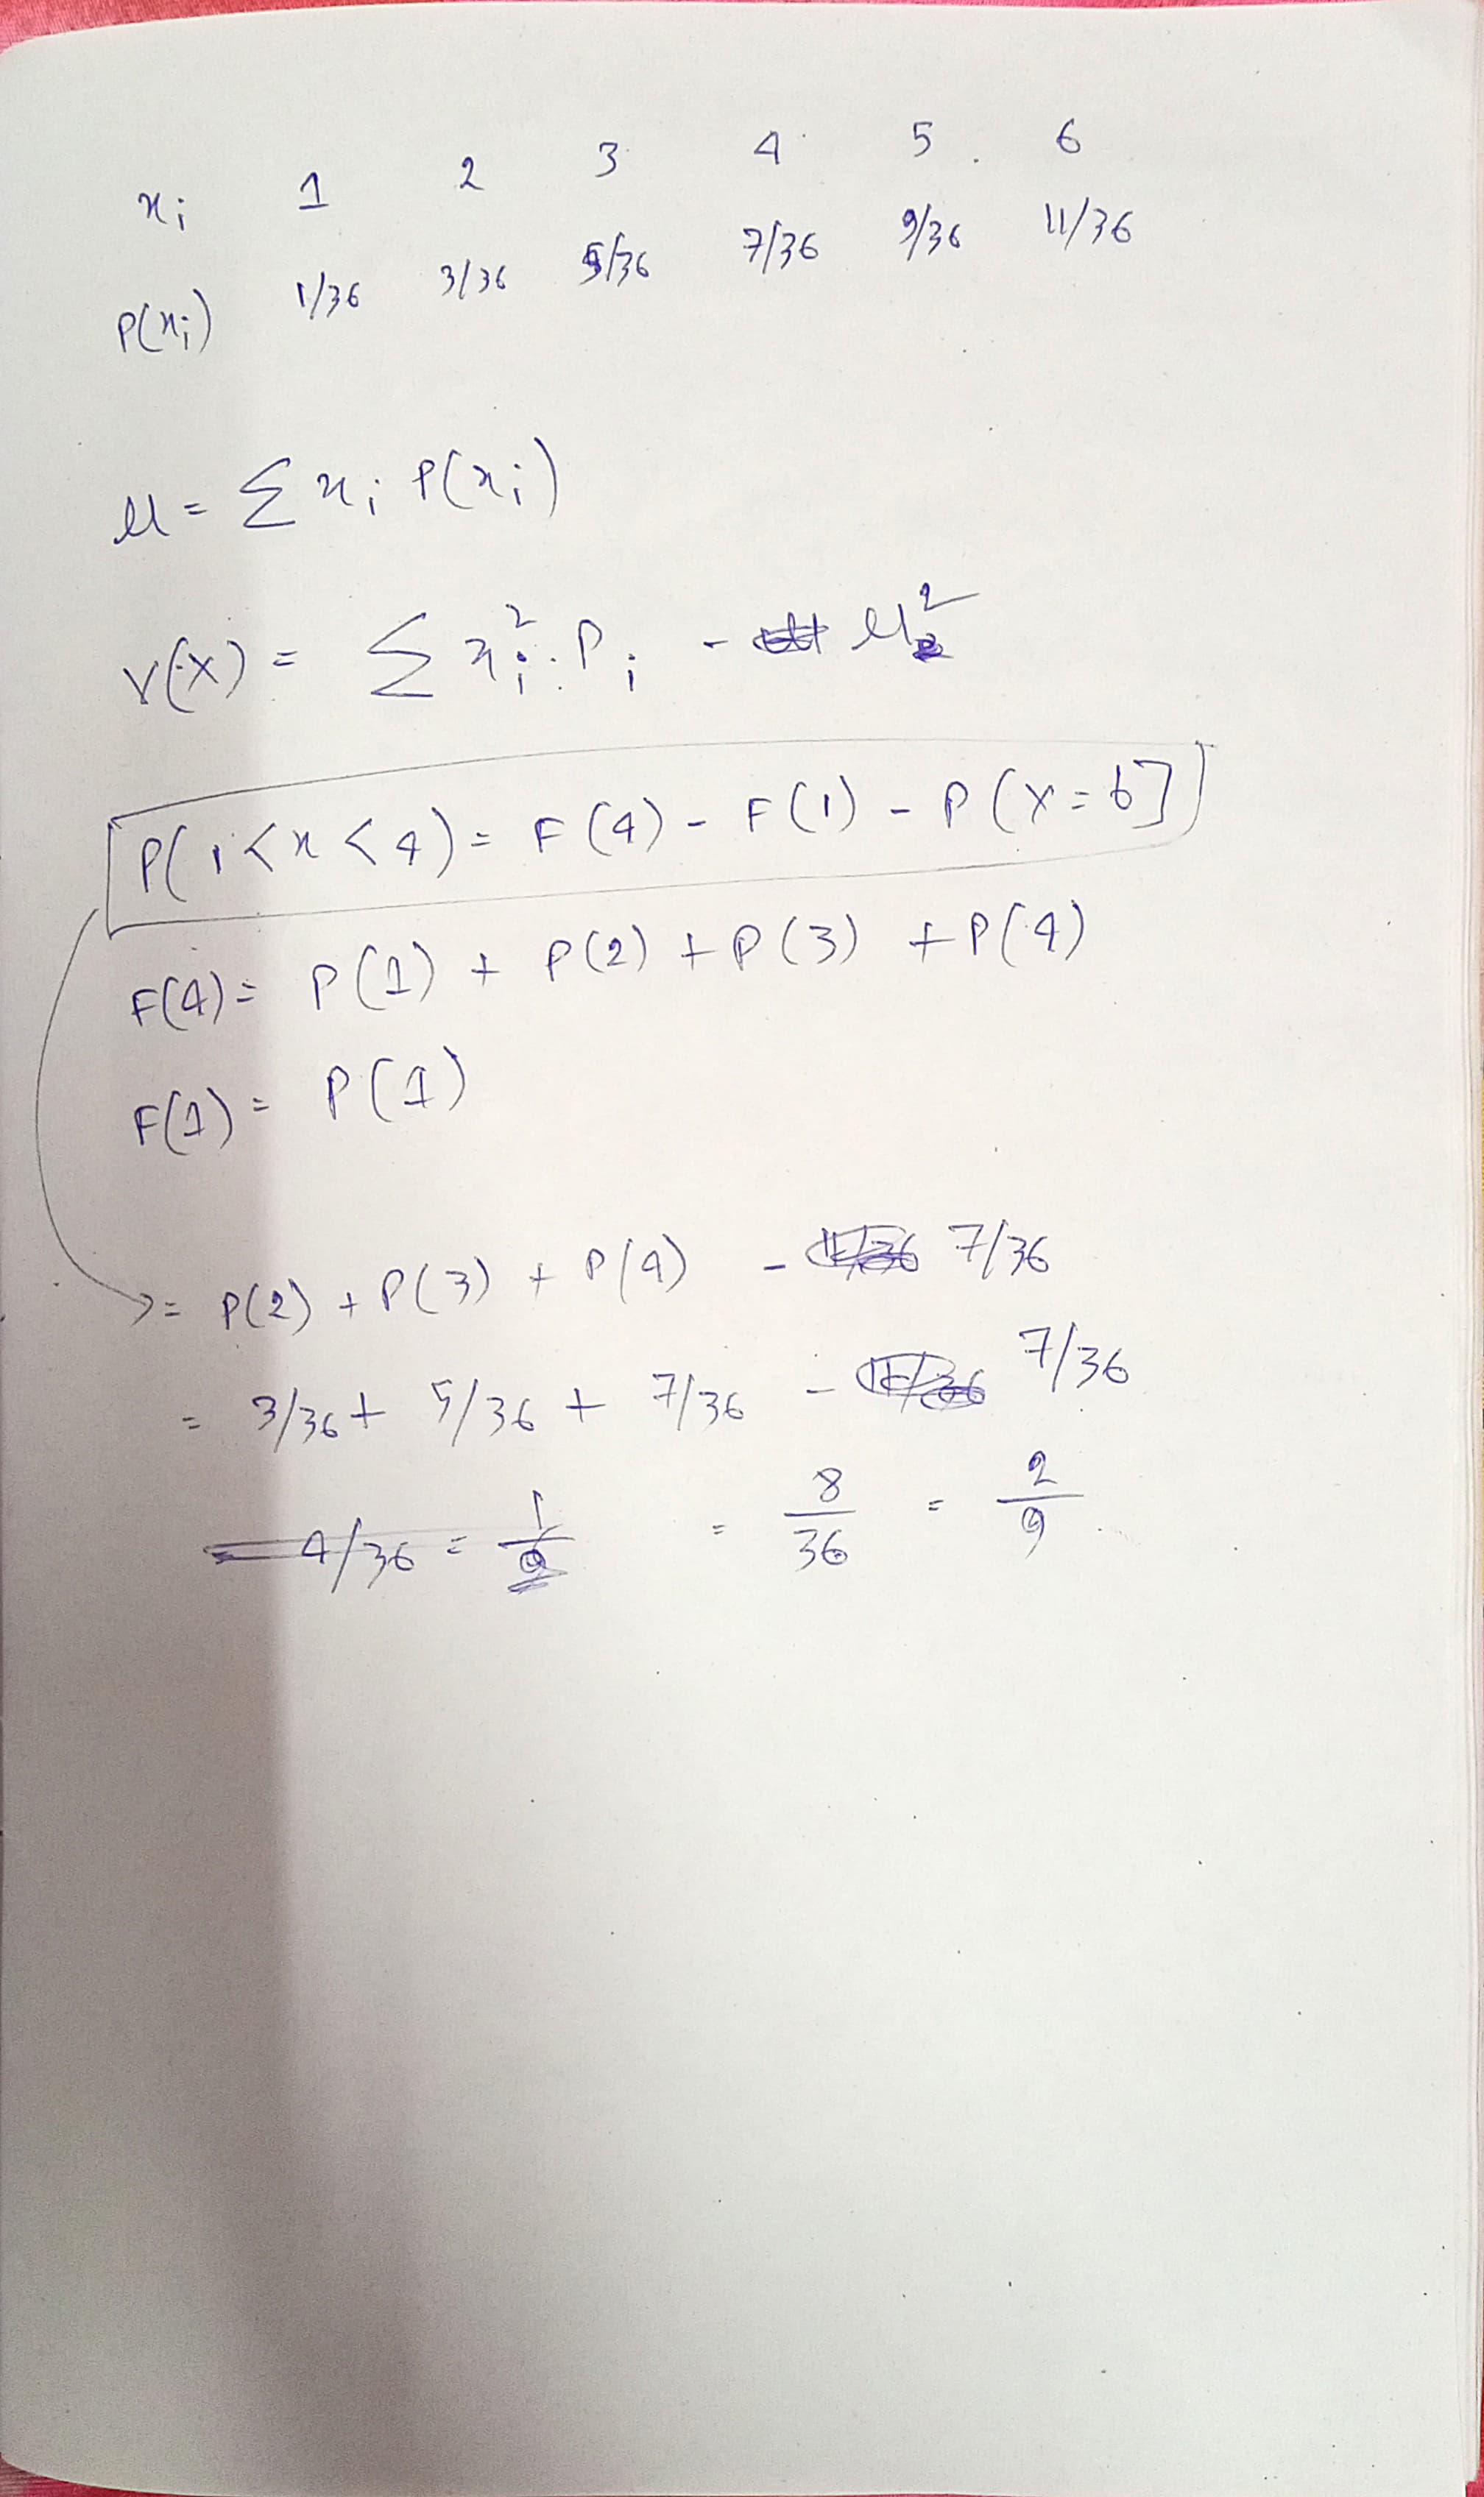 xᵢ 1 2 3 4 5 6
P(xᵢ) 1/36 3/36 5/36 7/36 9/36 11/36
μ = Σ xᵢ P(xᵢ)
V(X) = Σ xᵢ². Pᵢ - μ²
P(1<x<4) = F(4) - F(1) - P(X=b]
F(4) = P(1) + P(2) + P(3) + P(4)
F(1) = P(1)
= P(2) + P(3) + P(4) - 7/36
= 3/36 + 5/36 + 7/36 - 7/36
= 4/36 = 1/9 = 8/36 = 2/9